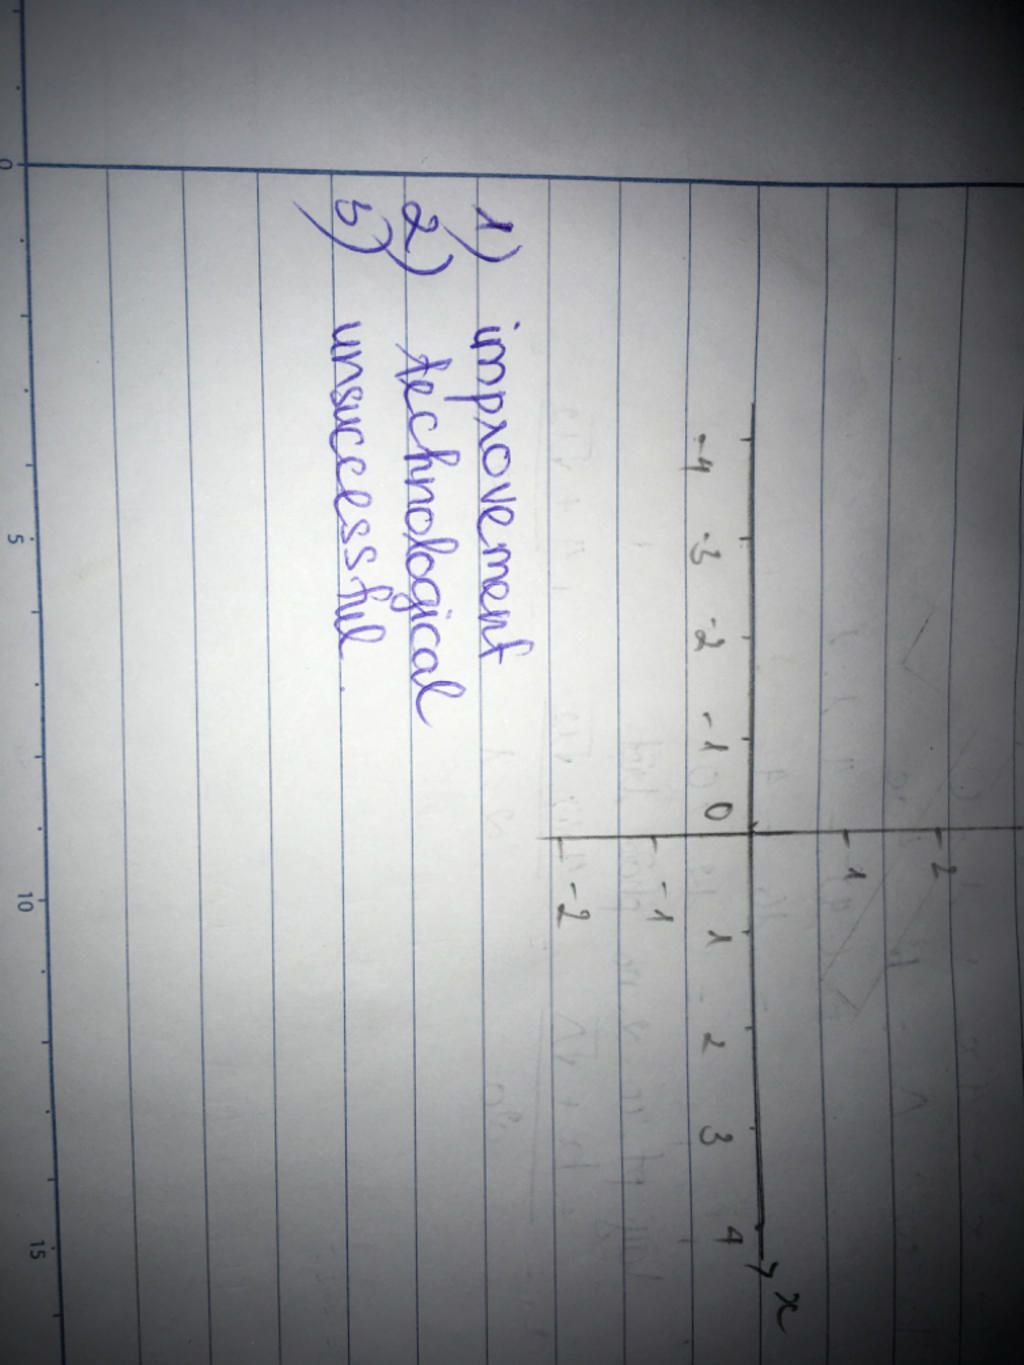 2
1
-4 -3 -2 -1 0 1 2 3 4 x
-1
-2
1) improvement
2) technological
3) unsuccessful
0 5 10 15